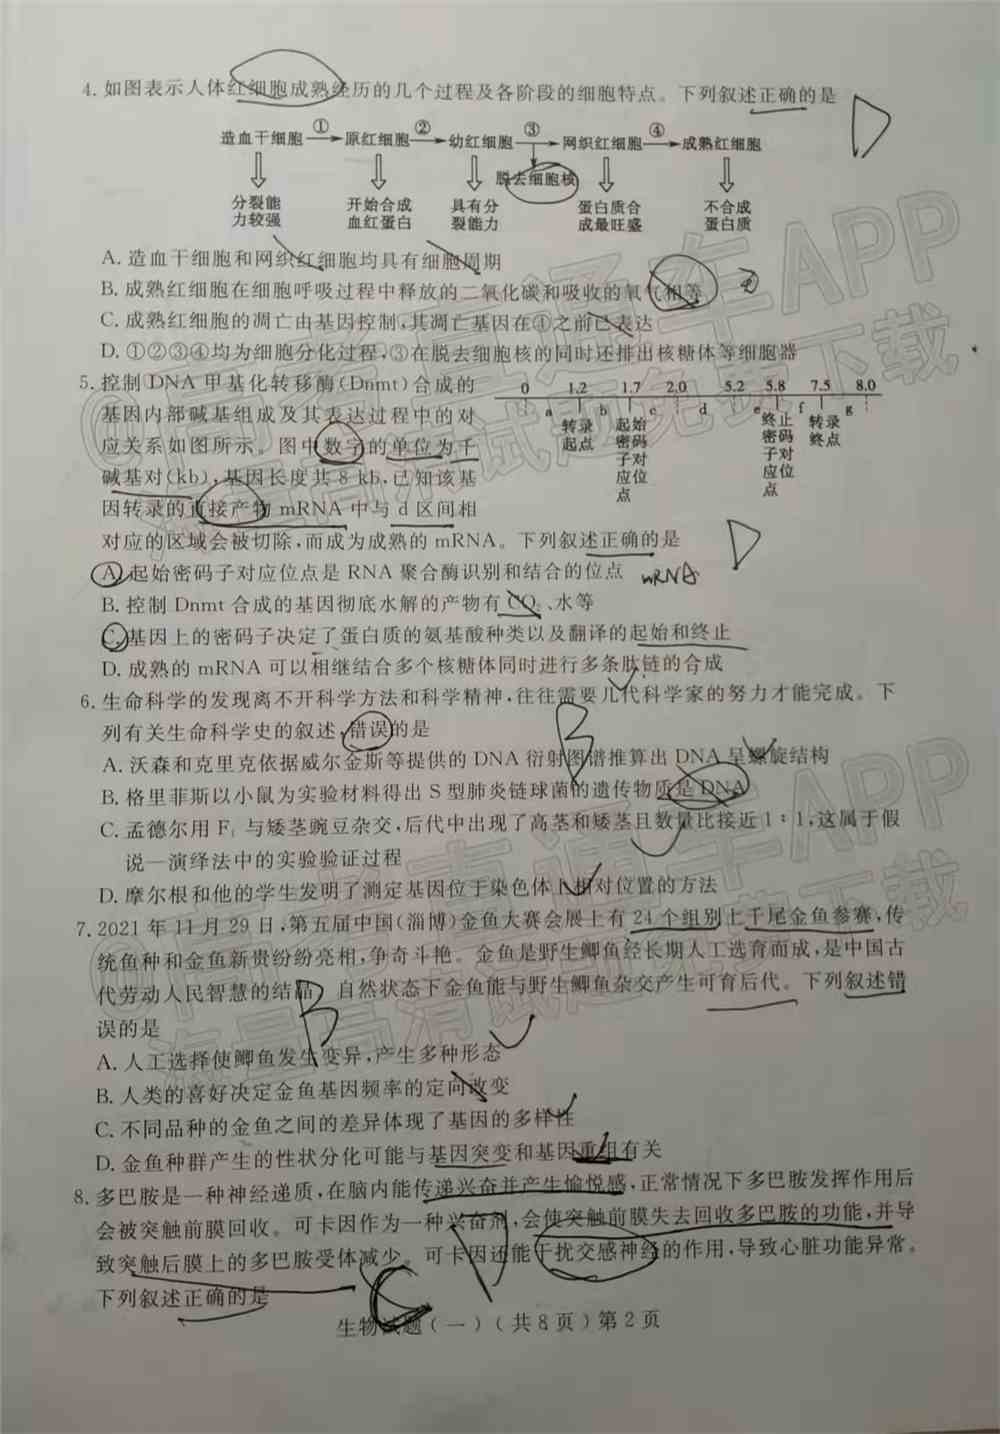 4. 如图表示人体红细胞成熟经历的几个过程及各阶段的细胞特点。下列叙述正确的是
D
① ② ③ ④
造血干细胞 原红细胞 幼红细胞 网织红细胞 成熟红细胞
脱去细胞核
分裂能力较强 开始合成血红蛋白 具有分裂能力 蛋白质合成最旺盛 不合成蛋白质
A. 造血干细胞和网织红细胞均具有细胞周期
B. 成熟红细胞在细胞呼吸过程中释放的二氧化碳和吸收的氧气相等
C. 成熟红细胞的凋亡由基因控制,其凋亡基因在④之前已表达
D. ①②③④均为细胞分化过程,③在脱去细胞核的同时还排出核糖体等细胞器
5. 控制 DNA 甲基化转移酶(Dnmt)合成的
基因内部碱基组成及其表达过程中的对
应关系如图所示。图中数字的单位为千
碱基对(kb),基因长度共 8 kb,已知该基
因转录的直接产物 mRNA 中与 d 区间相
对应的区域会被切除,而成为成熟的 mRNA。下列叙述正确的是
0 1.2 1.7 2.0 5.2 5.8 7.5 8.0
a b c d e f g
转录起点 起始密码子对应位点 终止密码子对应位点 转录终点
D
A. 起始密码子对应位点是 RNA 聚合酶识别和结合的位点
mRNA
B. 控制 Dnmt 合成的基因彻底水解的产物有 CO₂、水等
C. 基因上的密码子决定了蛋白质的氨基酸种类以及翻译的起始和终止
D. 成熟的 mRNA 可以相继结合多个核糖体同时进行多条肽链的合成
6. 生命科学的发现离不开科学方法和科学精神,往往需要几代科学家的努力才能完成。下
列有关生命科学史的叙述,错误的是
B
A. 沃森和克里克依据威尔金斯等提供的 DNA 衍射图谱推算出 DNA 呈螺旋结构
B. 格里菲斯以小鼠为实验材料得出 S 型肺炎链球菌的遗传物质是 DNA
C. 孟德尔用 F₁ 与矮茎豌豆杂交,后代中出现了高茎和矮茎且数量比接近 1∶1,这属于假
说—演绎法中的实验验证过程
D. 摩尔根和他的学生发明了测定基因位于染色体上相对位置的方法
7. 2021 年 11 月 29 日,第五届中国(淄博)金鱼大赛会展上有 24 个组别上千尾金鱼参赛,传
统鱼种和金鱼新贵纷纷亮相,争奇斗艳。金鱼是野生鲫鱼经长期人工选育而成,是中国古
代劳动人民智慧的结晶。自然状态下金鱼能与野生鲫鱼杂交产生可育后代。下列叙述错
误的是
B
A. 人工选择使鲫鱼发生变异,产生多种形态
B. 人类的喜好决定金鱼基因频率的定向改变
C. 不同品种的金鱼之间的差异体现了基因的多样性
D. 金鱼种群产生的性状分化可能与基因突变和基因重组有关
8. 多巴胺是一种神经递质,在脑内能传递兴奋并产生愉悦感,正常情况下多巴胺发挥作用后
会被突触前膜回收。可卡因作为一种兴奋剂,会使突触前膜失去回收多巴胺的功能,并导
致突触后膜上的多巴胺受体减少。可卡因还能干扰交感神经的作用,导致心脏功能异常。
下列叙述正确的是
C
生物试题(一)(共8页)第2页